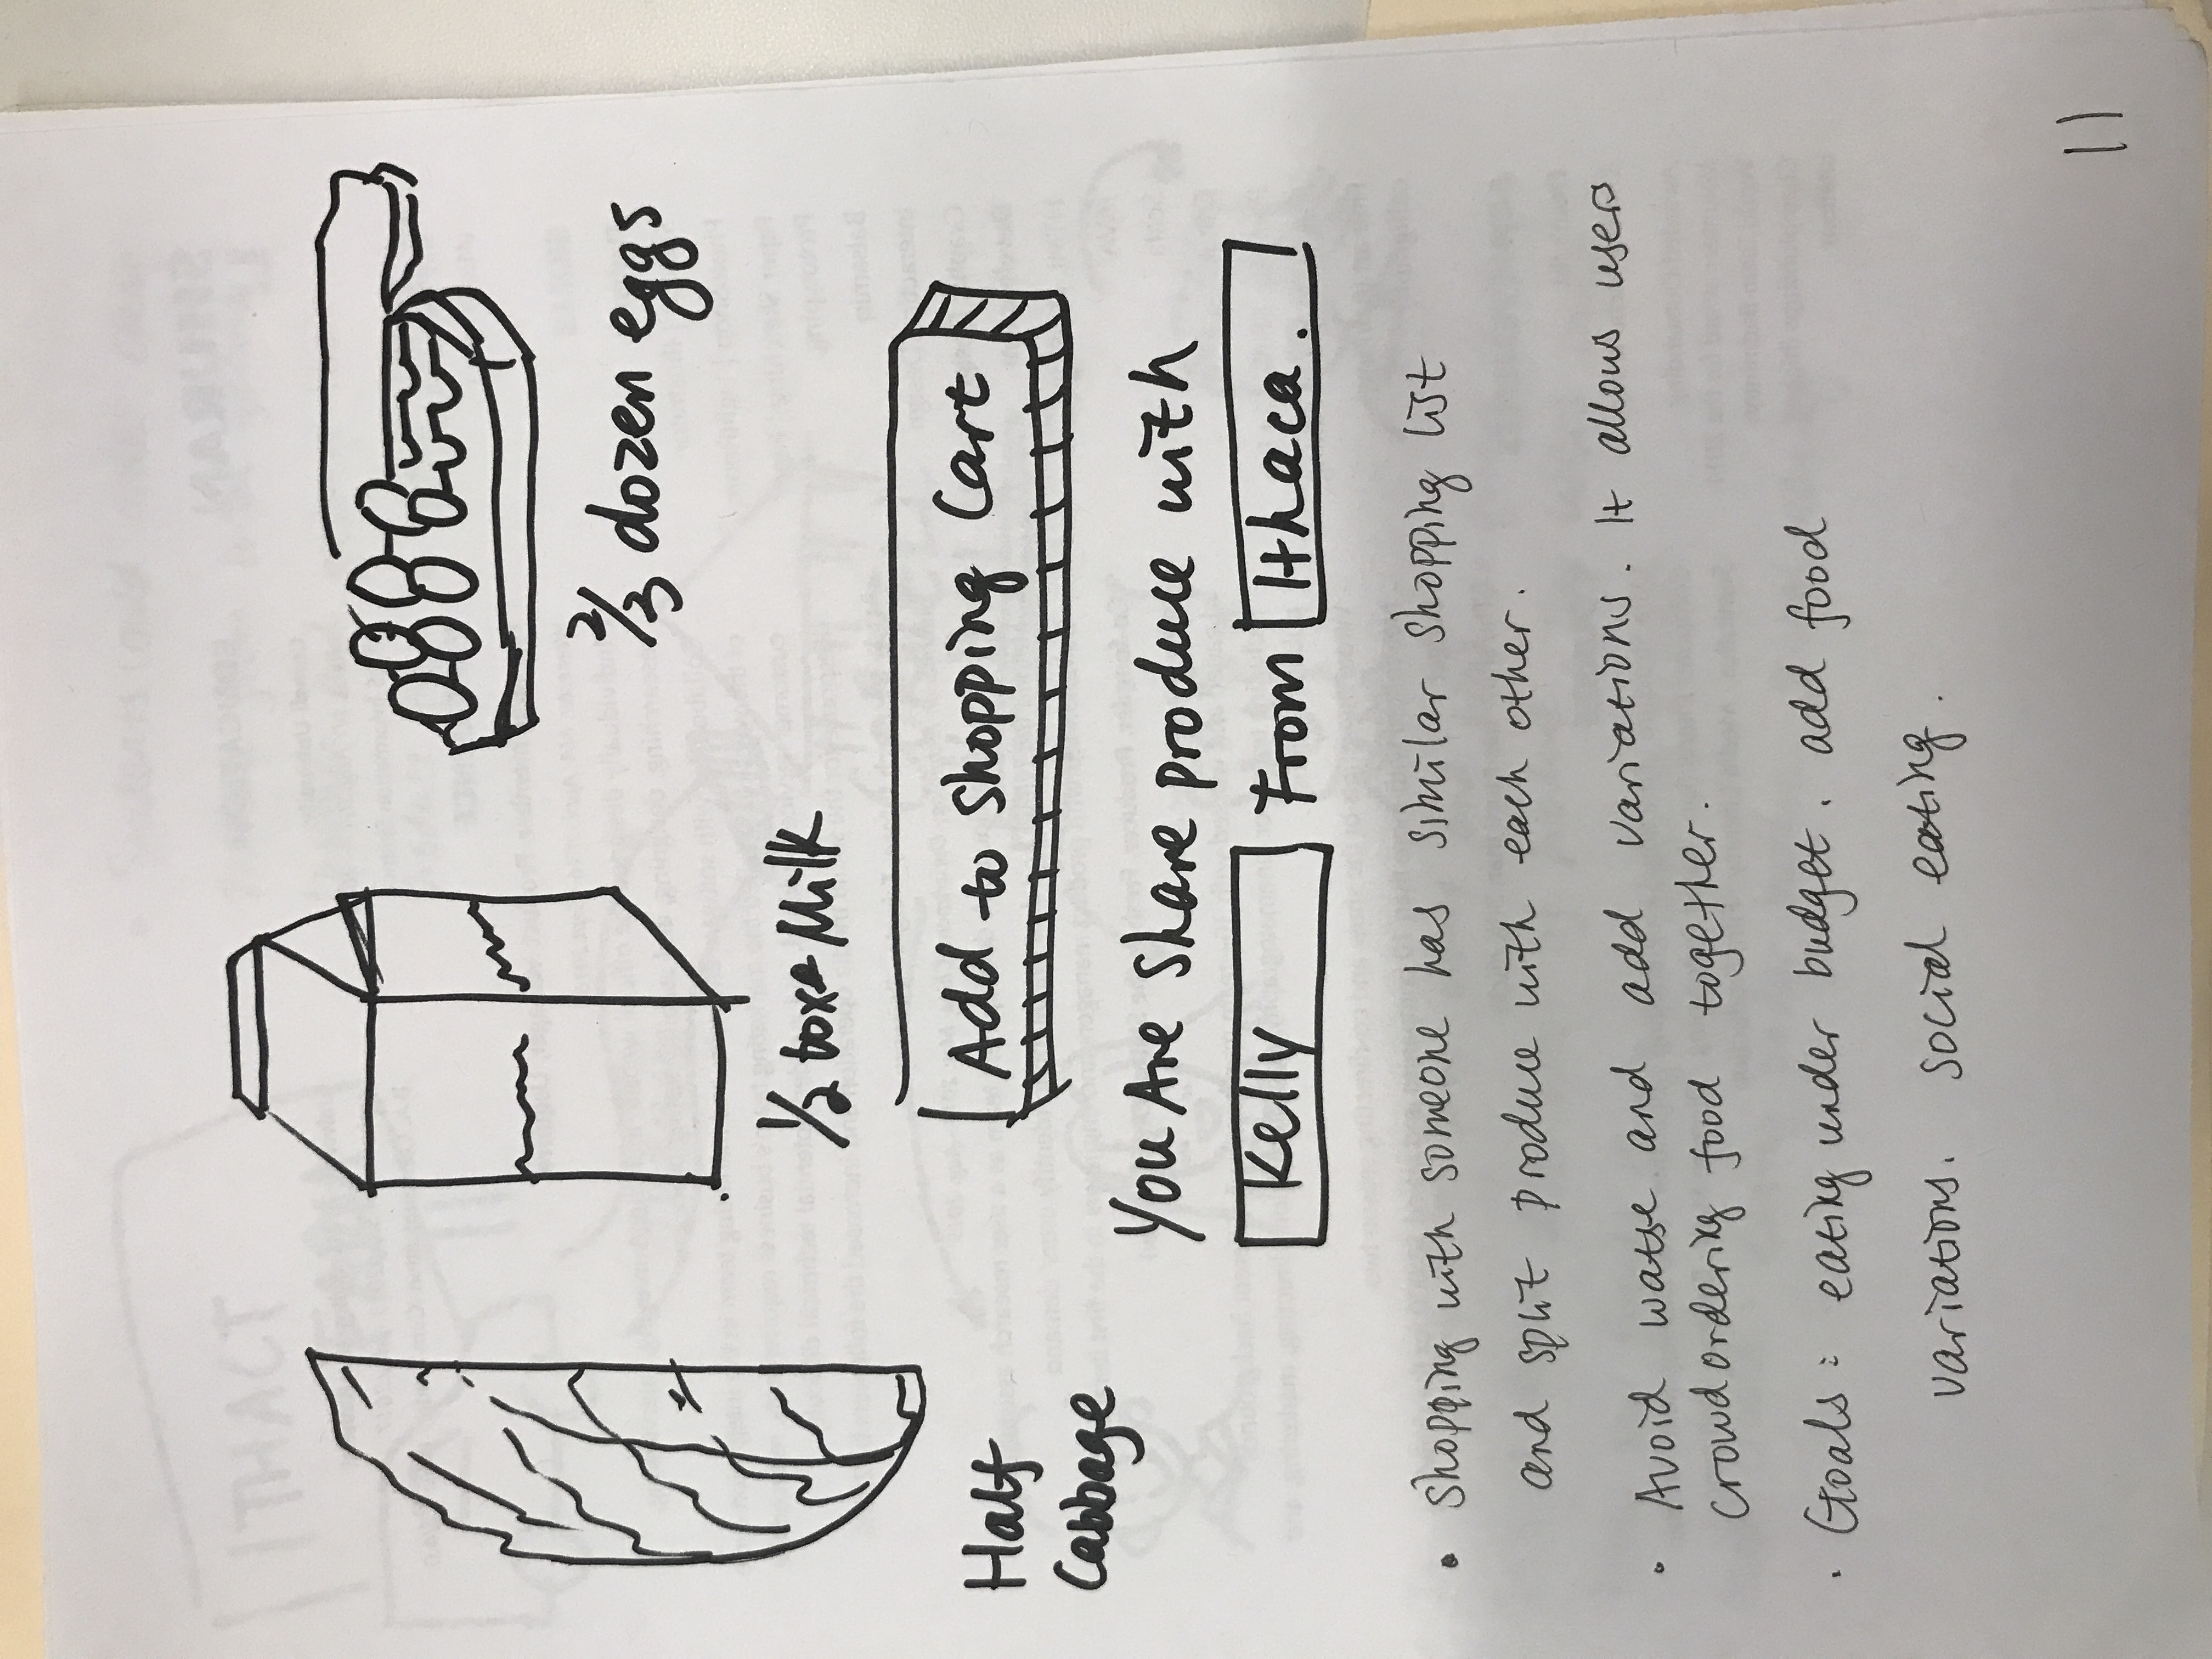 2/3 dozen eggs
1/2 boxe Milk
Half
Cabbage
Add to Shopping Cart
You Are Share produce with
Kelly From Ithaca.
• Shopping with someone has similar shopping list
and split produce with each other.
• Avoid watse and add variations. It allows users
crowdordering food together.
• Goals: eating under budget. add food
variations. social eating.
11